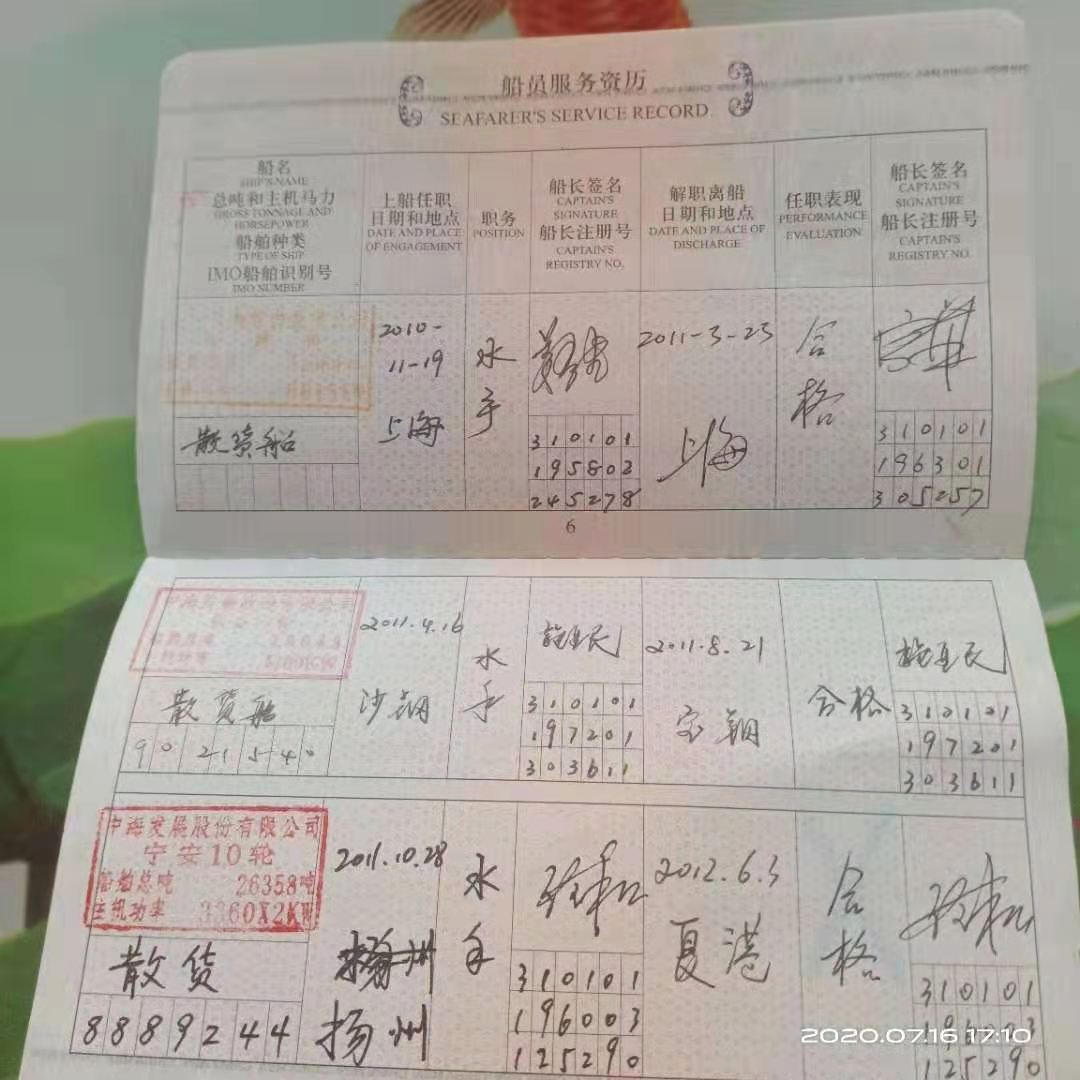 船员服务资历
SEAFARER'S SERVICE RECORD
船名
SHIP'S NAME
总吨和主机马力
GROSS TONNAGE AND
HORSEPOWER
船舶种类
TYPE OF SHIP
IMO船舶识别号
IMO NUMBER
上船任职
日期和地点
DATE AND PLACE
OF ENGAGEMENT
职务
POSITION
船长签名
CAPTAIN'S
SIGNATURE
船长注册号
CAPTAIN'S
REGISTRY NO.
解职离船
日期和地点
DATE AND PLACE OF
DISCHARGE
任职表现
PERFORMANCE
EVALUATION
船长签名
CAPTAIN'S
SIGNATURE
船长注册号
CAPTAIN'S
REGISTRY NO.
散货船
2010-
11-19
上海
水手
310101
195802
245278
2011-3-23
上海
合格
310101
196301
305257
6
散货船
9021540
2011.4.16
沙钢
水手
310101
197201
303611
2011.8.21
宝钢
合格
310101
197201
303611
中海发展股份有限公司
宁安10轮
船舶总吨 26358吨
主机功率 3360X2KW
散货
8889244
2011.10.28
扬州
水手
310101
196003
125290
2012.6.3
夏港
合格
310101
125290
2020.07.16 17:10